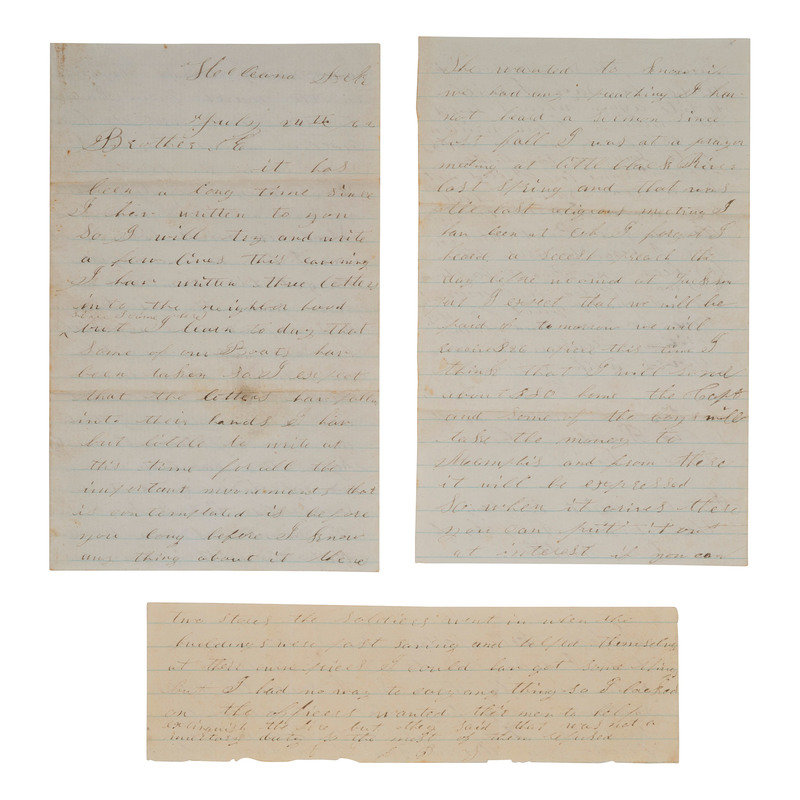 Helena Ark
July 24th
Brother
it has
been a long time since
I hav written to you
So I will try and write
a few lines this evening
I hav written three letters
into the neighbor hood
but I learn to day that
Some of our Boats hav
been taken So I expect
that the letters hav fallen
into their hands I hav
but little to write at
this time for all the
important movements that
is contemplated is before
you long before I know
any thing about it
She wanted to know if
we had any preaching I hav
not heard a sermon since
last fall I was at a prayer
meeting at little black River
last Spring and that was
the last religious meeting I
hav been at Oh I forgot I
heard a secesh preach the
day before
I expect that we will be
paid of tomorrow we will
this time I
think that I will send
about $50 home the Capt
and Some of the boys will
take the money to
Memphis and from there
it will be expressed
So when it arives there
you can put it out
at interest if you can
two stores the Soldiers went in when the
buildings were fast and helped themselves
at their own prices I could hav got some things
but I had no way to cary any thing So I looked
on the officers wanted their men to help
extinguish the fire but they said that was not a
military duty So the most of them refused